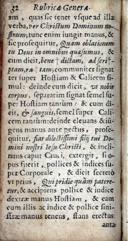 32 Rubricæ Genera
um, quas sic tenet vsque ad illa
verba, per Christum Dominum no-
strum, tunc enim iungit manus, &
sic prosequitur, Quam oblationem
tu Deus in omnibus quæsumus, &
cum dicit, bene dictam, ad scri-
ptam, ra tam, communiter signat
ter super Hostiam & Calicem si-
mul: deinde cum dicit, ut nobis
corpus, separatim signat semel su-
per Hostiam tantum, & cum di-
cit, & sanguis, semel super Cali-
cem tantum: deinde eleuans & iun-
gens manus ante pectus, prose-
quitur, fiat dilectissimi filij tui Do-
mini nostri Iesu Christi, & incli-
nans caput Cruci, extergit, si
opus fuerit, pollices & indices su-
per Corporale, & dicit secreto
vt prius, Qui pridie quàm patere-
tur, & accipiens pollice & indice
dexteræ manus Hostiam, & eam
cum illis ac indice & pollice sini-
stræ manus tenens, stans erectus
ante